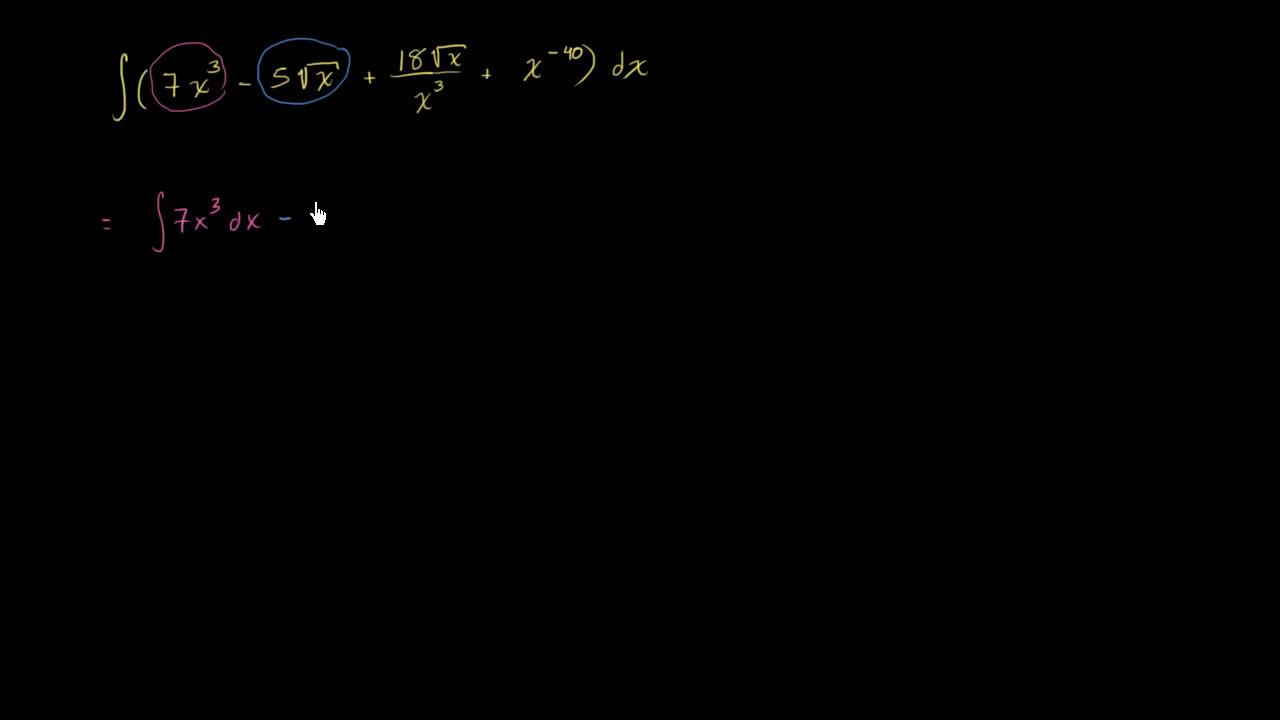 ∫(7x³ - 5√x + 18√x/x³ + x⁻⁴⁰) dx
= ∫7x³ dx -